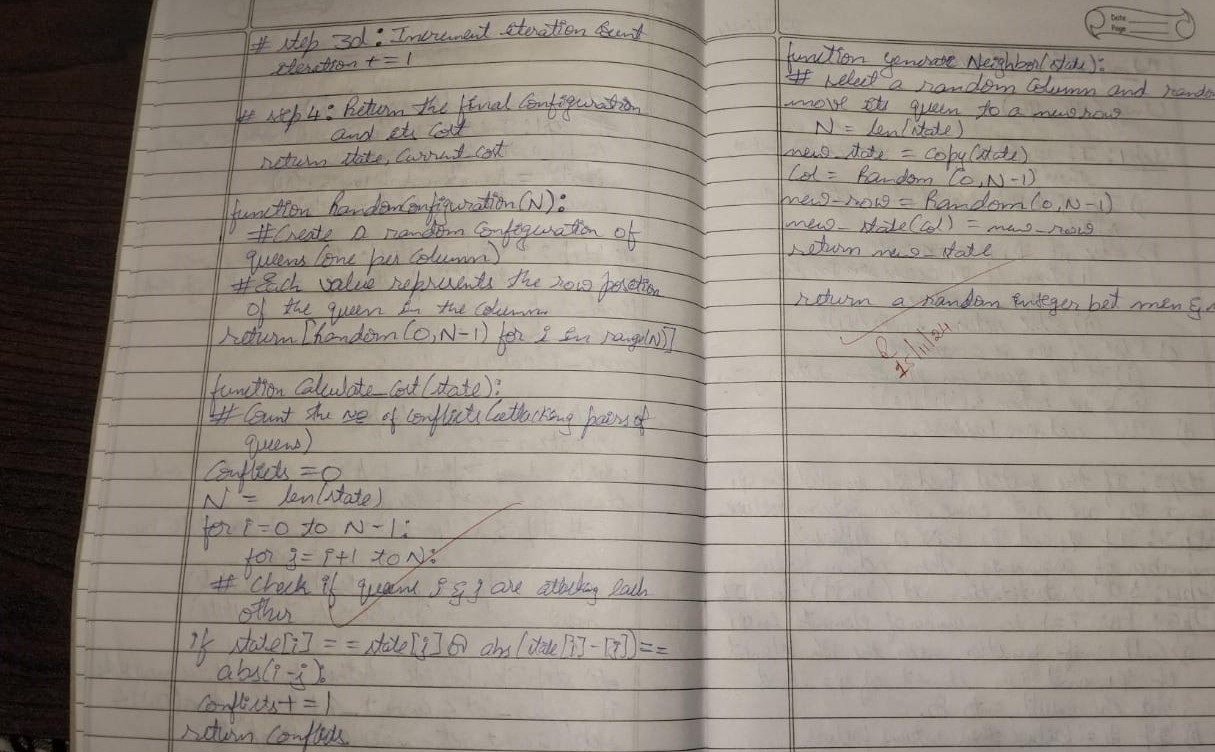 # step 3d: Increment iteration Count
iteration += 1
# step 4: Return the final Configuration
and its Cost
return state, Current_Cost
function RandomConfiguration(N):
# Create a random Configuration of
queens (one per Column)
# Each value represents the row position
of the queen in the Column
return [Random(0, N-1) for i in range(N)]
function Calculate_Cost(state):
# Count the no of Conflicts (attacking pairs of
queens)
Conflicts = 0
N = len(state)
for i=0 to N-1:
for j= i+1 to N:
# Check if queens i & j are attacking each
other
if state[i] == state[j] or abs(state[i]-[j])==
abs(i-j):
Conflicts += 1
return Conflicts
Date
Page
function generate Neighbor(state):
# select a random Column and rando
move its queen to a new row
N = len(state)
new_state = Copy(state)
Col = Random (0, N-1)
new-row = Random(0, N-1)
new_state(Col) = new_row
return new_state
return a random integer bet men &